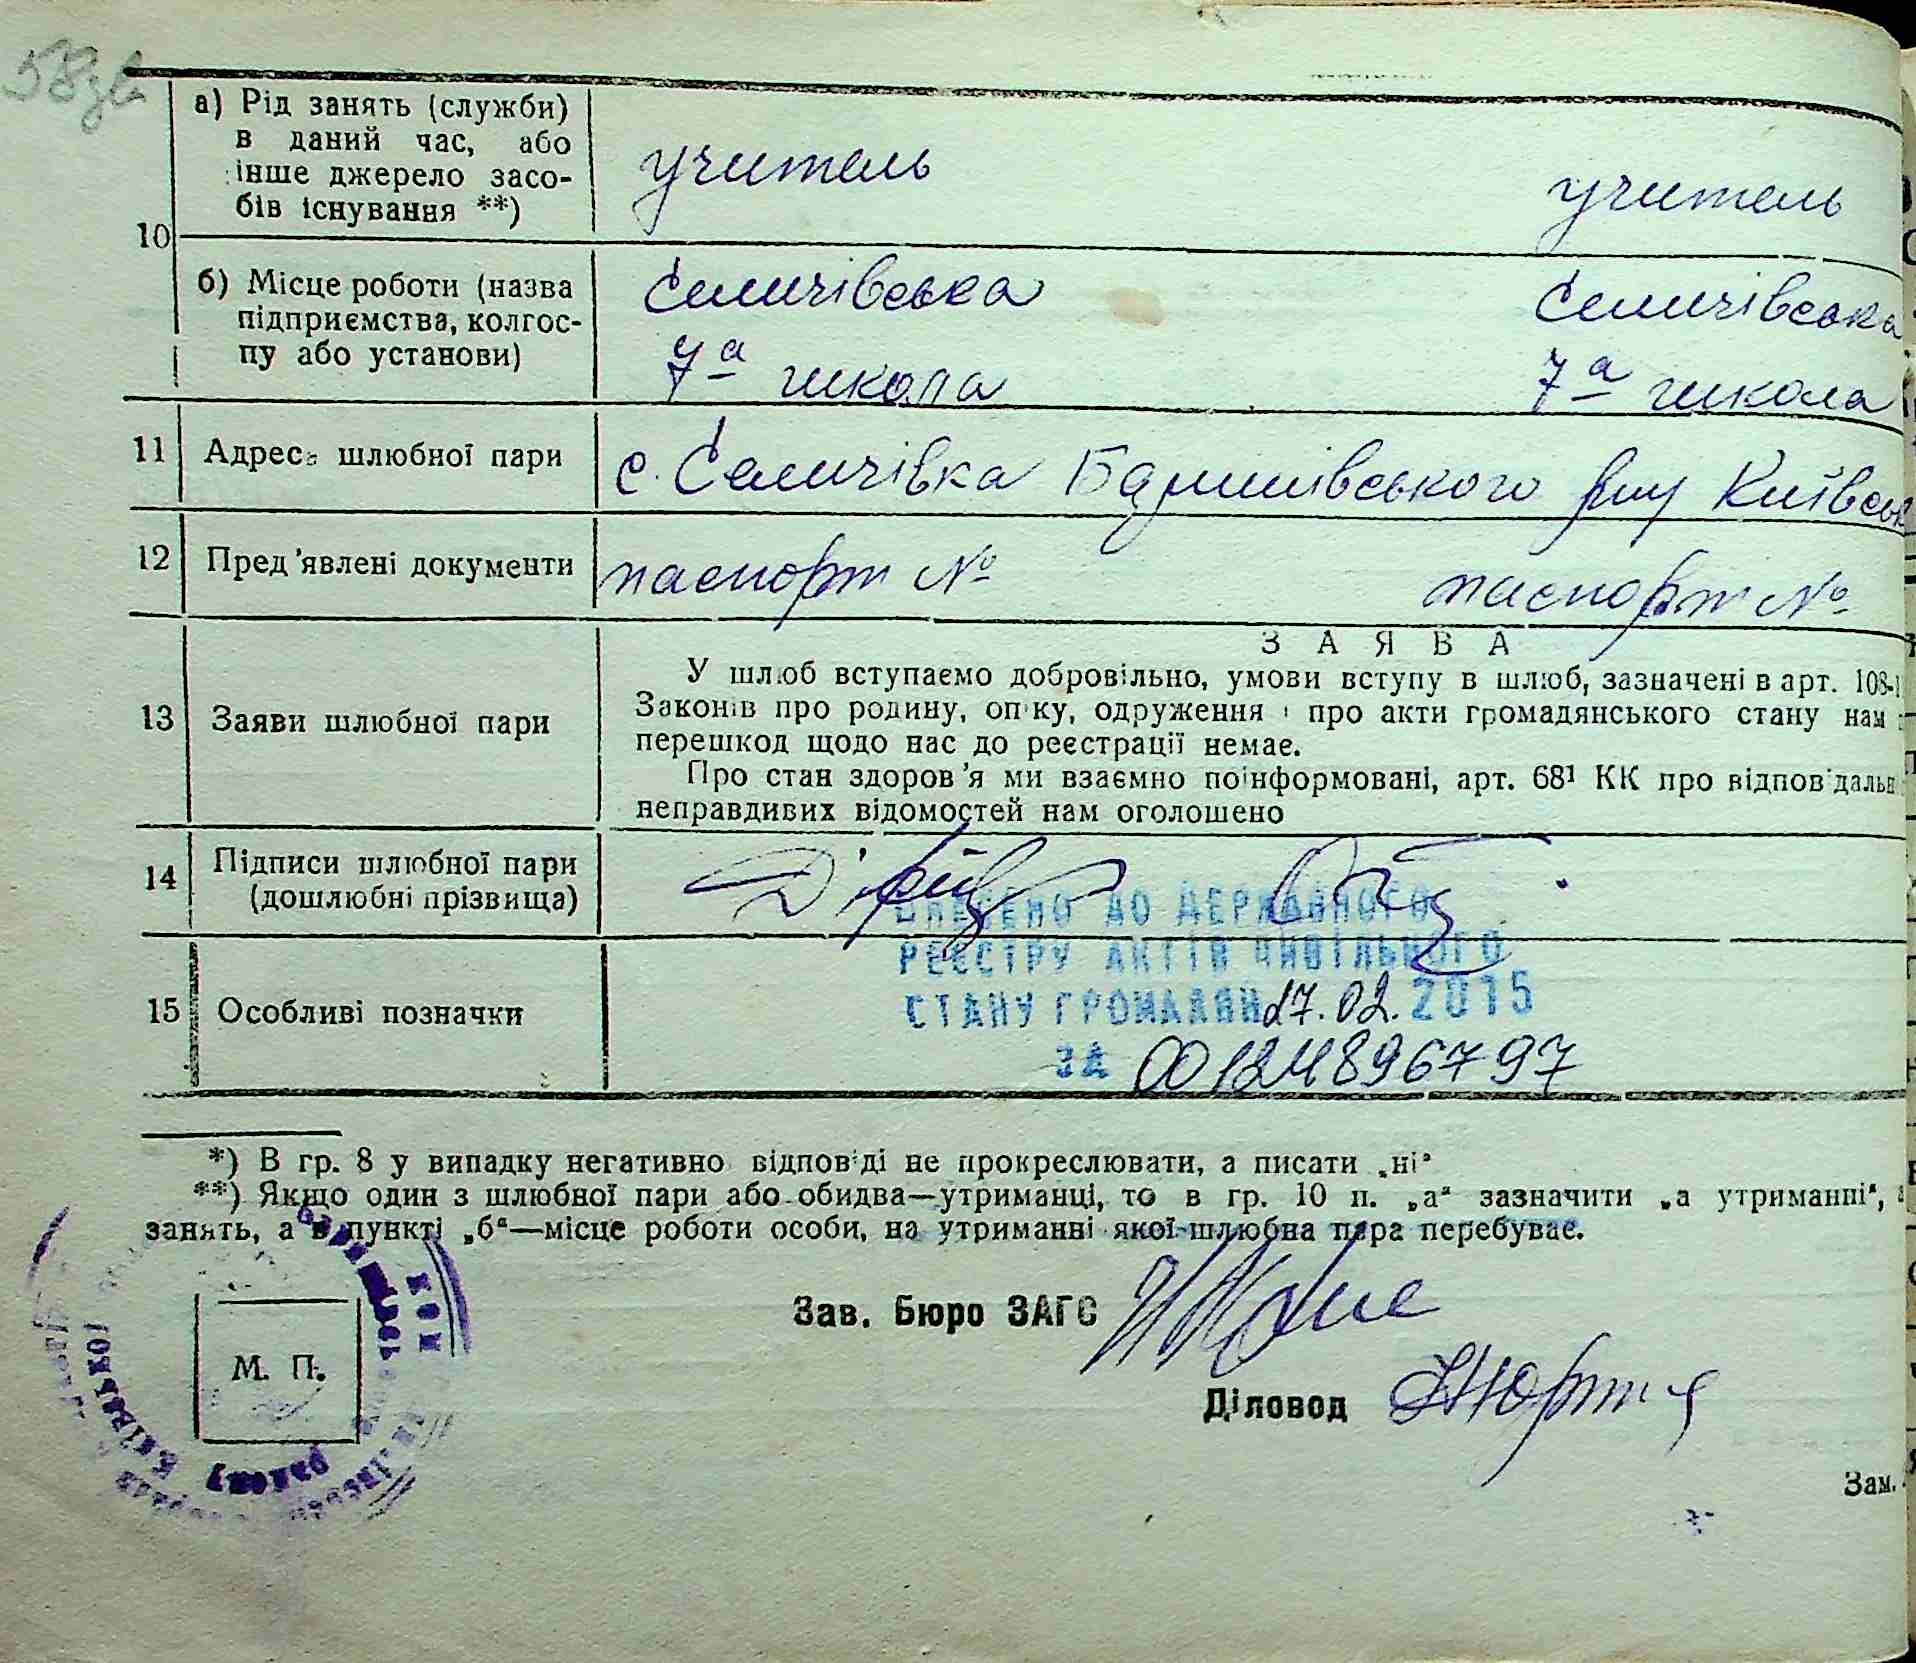 58зв
10
а) Рід занять (служби)
в даний час, або
інше джерело засо-
бів існування **)
учитель
учитель
б) Місце роботи (назва
підприємства, колгос-
пу або установи)
Селичівська
7ª школа
Селичівська
7ª школа
11 Адреса шлюбної пари
с. Селичівка Баришівського р-ну Київськ
12 Пред'явлені документи
паспорт №
паспорт №
13 Заяви шлюбної пари
ЗАЯВА
У шлюб вступаємо добровільно, умови вступу в шлюб, зазначені в арт. 108-1
Законів про родину, опіку, одруження і про акти громадянського стану нам
перешкод щодо нас до реєстрації немає.
Про стан здоров'я ми взаємно поінформовані, арт. 68¹ КК про відповідальн
неправдивих відомостей нам оголошено
14 Підписи шлюбної пари
(дошлюбні прізвища)
ВНЕСЕНО ДО ДЕРЖАВНОГО
РЕЄСТРУ АКТІВ ЦИВІЛЬНОГО
СТАНУ ГРОМАДЯН 27.02.2015
ЗА 00124896797
15 Особливі позначки
*) В гр. 8 у випадку негативно відповіді не прокреслювати, а писати „ні"
**) Якщо один з шлюбної пари або обидва—утриманці, то в гр. 10 п. „а" зазначити „а утриманні",
занять, а в пункті „б"—місце роботи особи, на утриманні якої шлюбна пара перебуває.
Зав. Бюро ЗАГС
М. П.
Діловод
Зам.